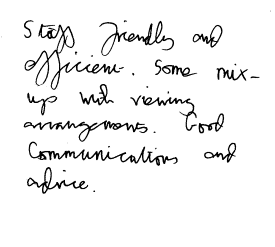 Staff friendly and
efficient. Some mix-
up with viewing
arrangements. Good
Communications and
advice.